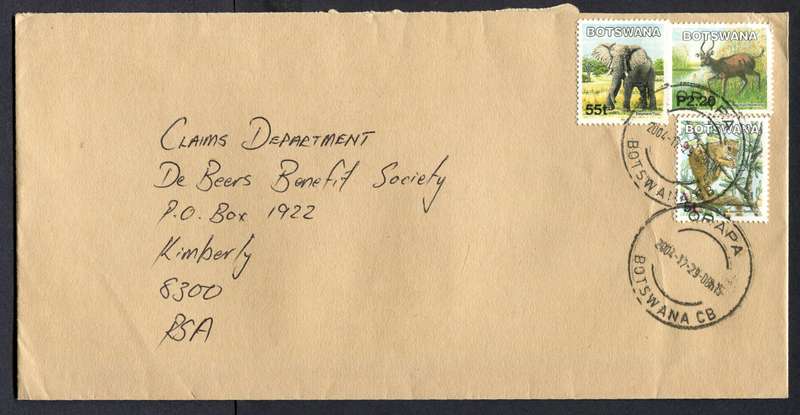 BOTSWANA
55t
BOTSWANA
P2.20
BOTSWANA
CLAIMS DEPARTMENT
De Beers Benefit Society
P.O. Box 1922
Kimberly
8300
RSA
ORAPA
BOTSWANA CB
ORAPA
BOTSWANA CB